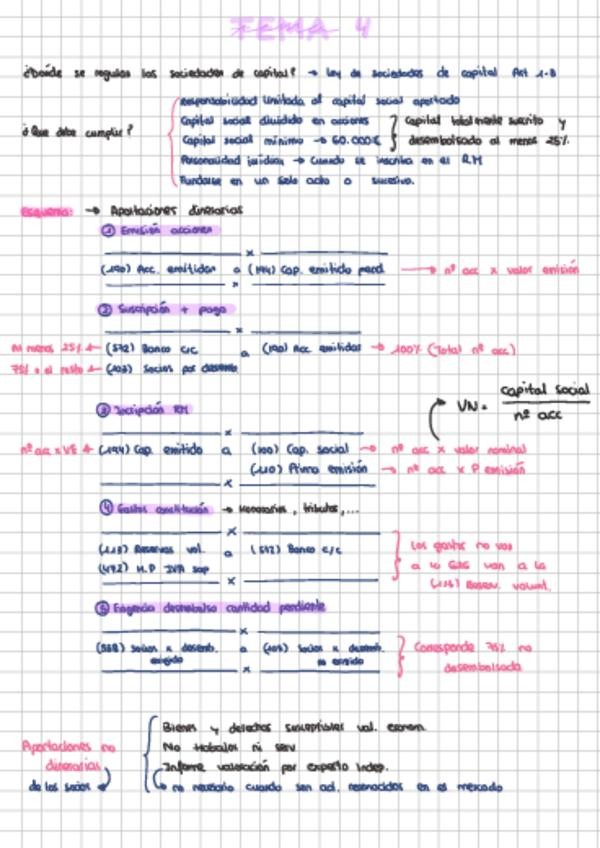 TEMA 4
¿Donde se regulas las sociedades de capital? → ley de sociedades de capital Art 1-8
¿Que debe cumplir?
Responsabilidad limitada al capital social aportado
Capital social dividido en acciones
Capital social mínimo → 60.000€
} Capital totalmente suscrito y desembolsado al menos 25%.
Personalidad jurídica → Cuando se inscriba en el RM
Fundarse en un solo acto o sucesivo.
Esquema: → Aportaciones dinerarias
① Emisión acciones
x
(190) Acc. emitidas a (194) Cap. emitido pend. → nº acc x valor emisión
x
② Suscripción + pago
x
Al menos 25% ← (572) Banco c/c a (190) Acc emitidas → 100% (Total nº acc)
75% o el resto ← (103) Socios por desemb.
③ Inscripción RM
VN = capital social / nº acc
x
nº acc x VE ← (194) Cap. emitido a (100) Cap. social → nº acc x valor nominal
(110) Prima emisión → nº acc x P emisión
x
④ Gastos constitución → Honorarios, tributos,...
x
(113) Reservas vol. a (572) Banco c/c
(472) H.P IVA sop
x
Los gastos no van
a la G&G van a la
(113) Reserv. volunt.
⑤ Exigencia desembolso cantidad pendiente
x
(558) Socios x desemb. exigido a (103) Socios x desemb. no exigido
x
Corresponde 75% no
desembolsado
Aportaciones no
dinerarias
de los socios
Bienes y derechos susceptibles val. econom.
No trabajos ni serv
Informe valoración por experto indep.
→ no necesario cuando son ad. reconocidos en el mercado